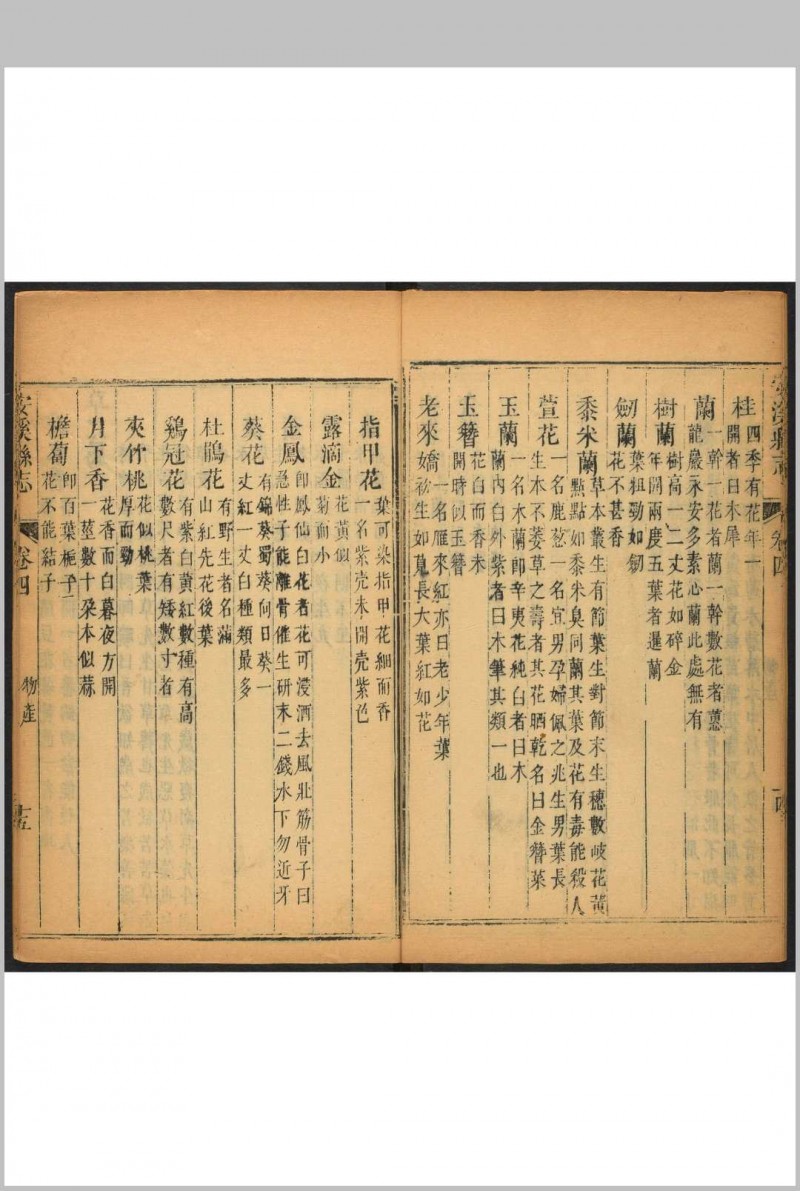 安溪縣志
卷四
桂 四季有花年一
開者曰木犀
蘭 一幹一花者蘭一幹數花者蕙
龍巖永安多素心蘭此處無有
樹蘭 樹高一二丈花如碎金
年開兩度五葉者暹蘭
劒蘭 葉粗勁如劒
花不甚香
黍米蘭 草本叢生有節葉生對節末生穗數岐花黃
點點如黍米臭同蘭其葉及花有毒能殺人
萱花 一名鹿葱一名宜男孕婦佩之兆生男葉長
生本不萎草之壽者其花晒乾名曰金簪菜
玉蘭 一名木蘭卽辛夷花純白者曰木
蘭內白外紫者曰木筆其類一也
玉簪 花白而香未
開時似玉簪
老來嬌 一名雁來紅亦曰老少年葉
初生如莧長大葉紅如花
指甲花 葉可染指甲花細而香
一名紫壳未開壳紫色
露滴金 花黃似
菊而小
金鳳 卽鳳仙白花者花可浸酒去風壯筋骨子曰
急性子能離骨催生研末二錢水下勿近牙
葵花 有錦葵蜀葵向日葵一
丈紅一丈白種類最多
杜鵑花 有野生者名滿
山紅先花後葉
鷄冠花 有紫白黃紅數種有高
數尺者有矮數寸者
夾竹桃 花似桃葉
厚而勁
月下香 花香而白暮夜方開
一莖數十朶本似蒜
檐蔔 卽百葉梔子
花不能結子
安溪縣志
卷四
物產
十五